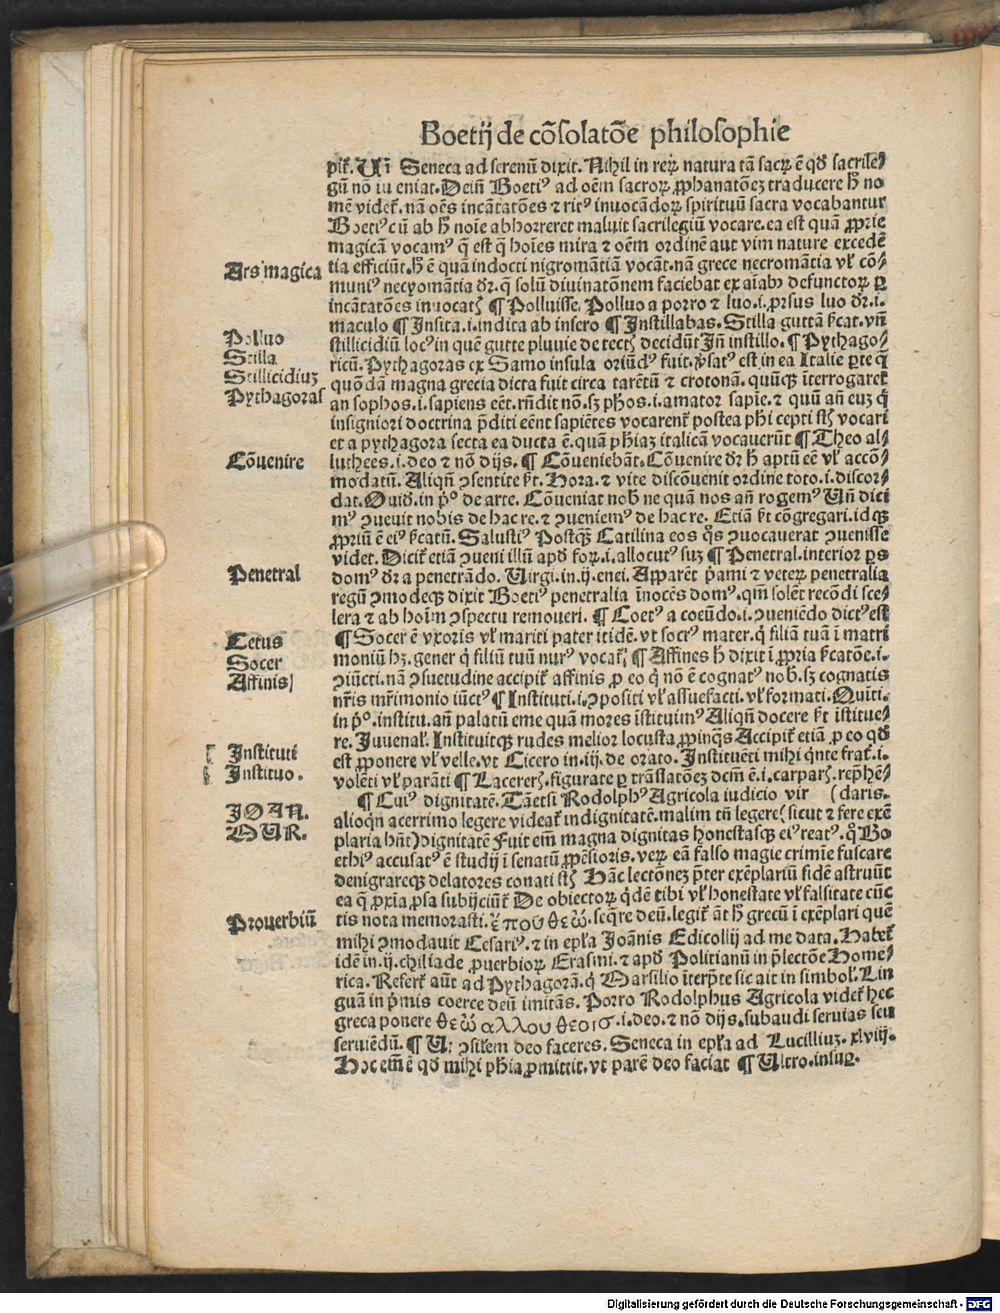 Boetij de cõsolatõe philosophie
pit̃. Uñ Seneca ad serenũ dixit. Nihil in reꝝ natura tã sacꝝ ē qđ sacrile⸗
gũ nõ iu eniat. Deiñ Boetiꝰ ad oēm sacroꝝ ꝓphanatõeꝫ traducere h̄ no
mē videt̃. nã oēs incãtatões ⁊ ritꝰ inuocãdoꝝ spirituũ sacra vocabantur
Boetiꝰ cũ ab h̄ noīe abhorreret maluit sacrilegiũ vocare. ea est quã ꝓprie
magicã vocamꝰ q̄ est q̄ hoīes mira ⁊ oēm ordinē aut vim nature excedē
Ars magica
tia efficiũt. h̄ ē quã indocti nigromãtiã vocãt. nã grece necromãtia vl̃ cõ⸗
muniꝰ necyomãtia dr̃. q̄ solũ diuinatõnem faciebat ex aīabꝰ defunctoꝝ ꝑ
incãtatões inuocatꝭ ¶ Polluisse. Polluo a porro ⁊ luo .i. ꝓrsus luo dr̃ .i.
maculo ¶ Insita .i. indita ab insero ¶ Instillabas. Stilla guttã s̃cat. vñ
Polluo
stillicidiũ locꝰ in quē gutte pluuie de tectꝭ decidũt Iñ instillo. ¶ Pythago⸗
Stilla
ricũ. Pythagoras ex Samo insula oriũdꝰ fuit. ꝟsatꝰ est in ea Italie ꝑte q̄
Stillicidiuꝫ
quõdã magna grecia dicta fuit circa tarētũ ⁊ crotonã. quũqꝫ īterrogaret̃
Pythagoras
an sophos .i. sapiens eēt. rñdit nõ. sꝫ phōs .i. amator sapīe. ⁊ quũ añ euꝫ q̄
insigniori doctrina p̄diti eēnt sapiētes vocarent̃ postea phī cepti st̃ vocari
et a pythagora secta ea ducta ē. quã phīaꝫ italicã vocauerũt ¶ Theo al⸗
Cõuenire
luthees .i. deo ⁊ nõ dijs. ¶ Cõueniebãt. Cõuenire dr̃ h̄ aptũ eē vl̃ accõ⸗
modatũ. Aliqñ ɔsentire s̃t. Hora. ⁊ vite discõuenit ordine toto .i. discor⸗
dat. Ouid. in p̊ de arte. Cõueniat nob̃ ne quã nos añ rogemꝰ Uñ dici
mꝰ ɔueuit nobis de hac re. ⁊ ɔueniemꝰ de hac re. Etiã s̃t cõgregari. idqꝫ
ꝓpriũ ē eiꝰ s̃catũ. Salustiꝰ Postqꝫ Catilina eos q̊s ɔuocauerat ɔuenisse
videt. Dicit̃ etiã ɔueni illũ apđ foꝝ .i. allocutꝰ suꝫ ¶ Penetral. interior ꝑs
Penetral
domꝰ dr̃ a penetrãdo. Uirgi. in .ij. enei. Apparēt p̄ami ⁊ veteꝝ penetralia
regũ ɔmodeqꝫ dixit Boetiꝰ penetralia īnocēs domꝰ. qm̃ solēt recõdi sce⸗
lera ⁊ ab hoīm ɔspectu remoueri. ¶ Coetꝰ a coeũdo .i. ɔueniēdo dictꝰ est
Cetus
¶ Socer ē vxoris vl̃ mariti pater itidē. vt socrꝰ mater. q̇ filiã tuã ī matri
Socer
moniũ hꝫ. gener q̇ filiũ tuũ nurꝰ vocat̃ ¶ Affines h̄ dixit ī ꝓpria s̃catõe .i.
Affinis
ɔiũcti. nã ɔsuetudine accipit̃ affinis ꝓ eo q̇ nõ ē cognatꝰ nob̃. sꝫ cognatis
nr̃is mr̃imonio iũctꝰ ¶ Instituti .i. ɔpositi vl̃ assuefacti. vl̃ formati. Quiti.
in p̊. institu. añ palatũ eme quã mores īstituimꝰ Aliqñ docere s̃t īstitue⸗
Instituti
re. Juuenal̃. Instituitqꝫ rudes melior locusta ꝓpinq̃s Accipit̃ etiã ꝓ eo qđ
Instituo.
est ꝓponere vl̃ velle. vt Cicero in .iij. de orato. Instituēti mihi q̇nte frat̃ .i.
volēti vl̃ parãti ¶ Lacererꝭ. figurate ꝑ trãslatõeꝫ dcm̃ ē .i. carparꝭ. rep̄hē⸗
¶ Cuiꝰ dignitatē. Tãetsi Rodolphꝰ Agricola iudicio vir (daris.
IOAN.
alioqñ acerrimo legere videat̃ indignitatē. malim tñ legere (sicut ⁊ fere exē
MUR.
plaria hñt) dignitatē Fuit em̃ magna dignitas honestasqꝫ eiꝰ reatꝰ. q̊ Bo
ethiꝰ accusatꝰ ē studij ī senatũ ꝓpēsioris. veꝝ eã falso magie crimīe fuscare
denigrareqꝫ delatores conati st̃ Hãc lectõneꝫ p̄ter exēplariũ fidē astruũt
ea q̄ ꝓxīa ꝓsa subijciũt̃ De obiectoꝝ q̇dē tibi vl̃ honestate vl̃ falsitate cũc
Prouerbiũ
tis nota memorasti. ἕπου θεῶ. seq̃re deũ. legit̃ ãt h̄ grecũ ī exēplari quē
mihi ɔmodauit Cesariꝰ. ⁊ in epl̃a Joãnis Edicollij ad me data. Habet̃
idē in .ij. chiliade ꝓuerbioꝝ Erasmi. ⁊ apđ Politianũ in p̄lectõe Home⸗
rica. Refert̃ aũt ad Pythagorã. q̇ Marsilio īterp̄te sic ait in simbol̃. Lin
guã in p̄mis coerce deũ imitãs. Porro Rodolphus Agricola videt̃ hec
greca ponere θεῶ αλλου θεοισ .i. deo. ⁊ nõ dijs. subaudi seruias seu
seruiēdũ. ¶ U: ɔsilem deo faceres. Seneca in epl̃a ad Lucilliuꝫ. xlviij.
Hoc em̃ ē qđ mihi phīa ꝓmittit. vt parē deo faciat ¶ Ultro. insuꝑ.
Digitalisierung gefördert durch die Deutsche Forschungsgemeinschaft - DFG